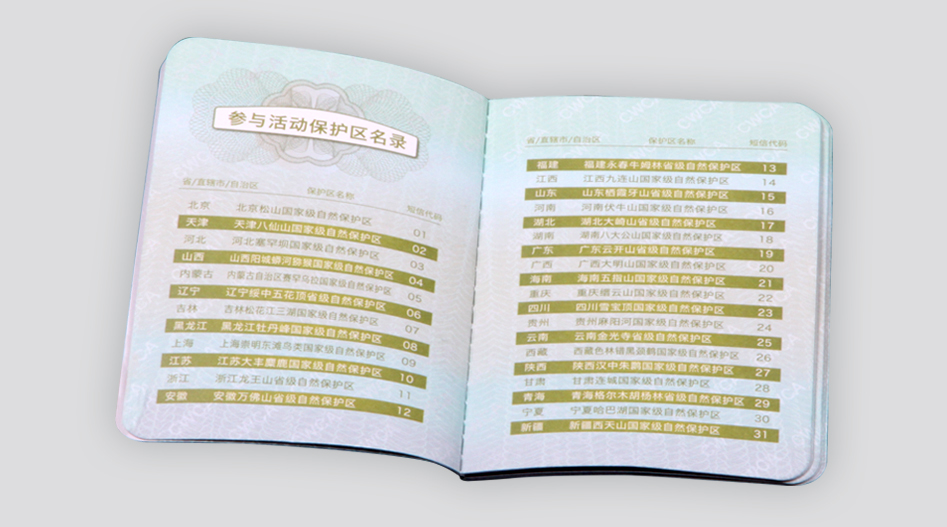 参与活动保护区名录
省/直辖市/自治区 保护区名称 短信代码
北京 北京松山国家级自然保护区 01
天津 天津八仙山国家级自然保护区 02
河北 河北塞罕坝国家级自然保护区 03
山西 山西阳城蟒河猕猴国家级自然保护区 04
内蒙古 内蒙古自治区赛罕乌拉国家级自然保护区 05
辽宁 辽宁绥中五花顶省级自然保护区 06
吉林 吉林松花江三湖国家级自然保护区 07
黑龙江 黑龙江牡丹峰国家级自然保护区 08
上海 上海崇明东滩鸟类国家级自然保护区 09
江苏 江苏大丰麋鹿国家级自然保护区 10
浙江 浙江龙王山省级自然保护区 11
安徽 安徽万佛山省级自然保护区 12
省/直辖市/自治区 保护区名称 短信代码
福建 福建永春牛姆林省级自然保护区 13
江西 江西九连山国家级自然保护区 14
山东 山东栖霞牙山省级自然保护区 15
河南 河南伏牛山国家级自然保护区 16
湖北 湖北大崎山省级自然保护区 17
湖南 湖南八大公山国家级自然保护区 18
广东 广东云开山省级自然保护区 19
广西 广西大明山国家级自然保护区 20
海南 海南五指山国家级自然保护区 21
重庆 重庆缙云山国家级自然保护区 22
四川 四川雪宝顶国家级自然保护区 23
贵州 贵州麻阳河国家级自然保护区 24
云南 云南金光寺省级自然保护区 25
西藏 西藏色林错黑颈鹤国家级自然保护区 26
陕西 陕西汉中朱鹮国家级自然保护区 27
甘肃 甘肃连城国家级自然保护区 28
青海 青海格尔木胡杨林省级自然保护区 29
宁夏 宁夏哈巴湖国家级自然保护区 30
新疆 新疆西天山国家级自然保护区 31
CWCA